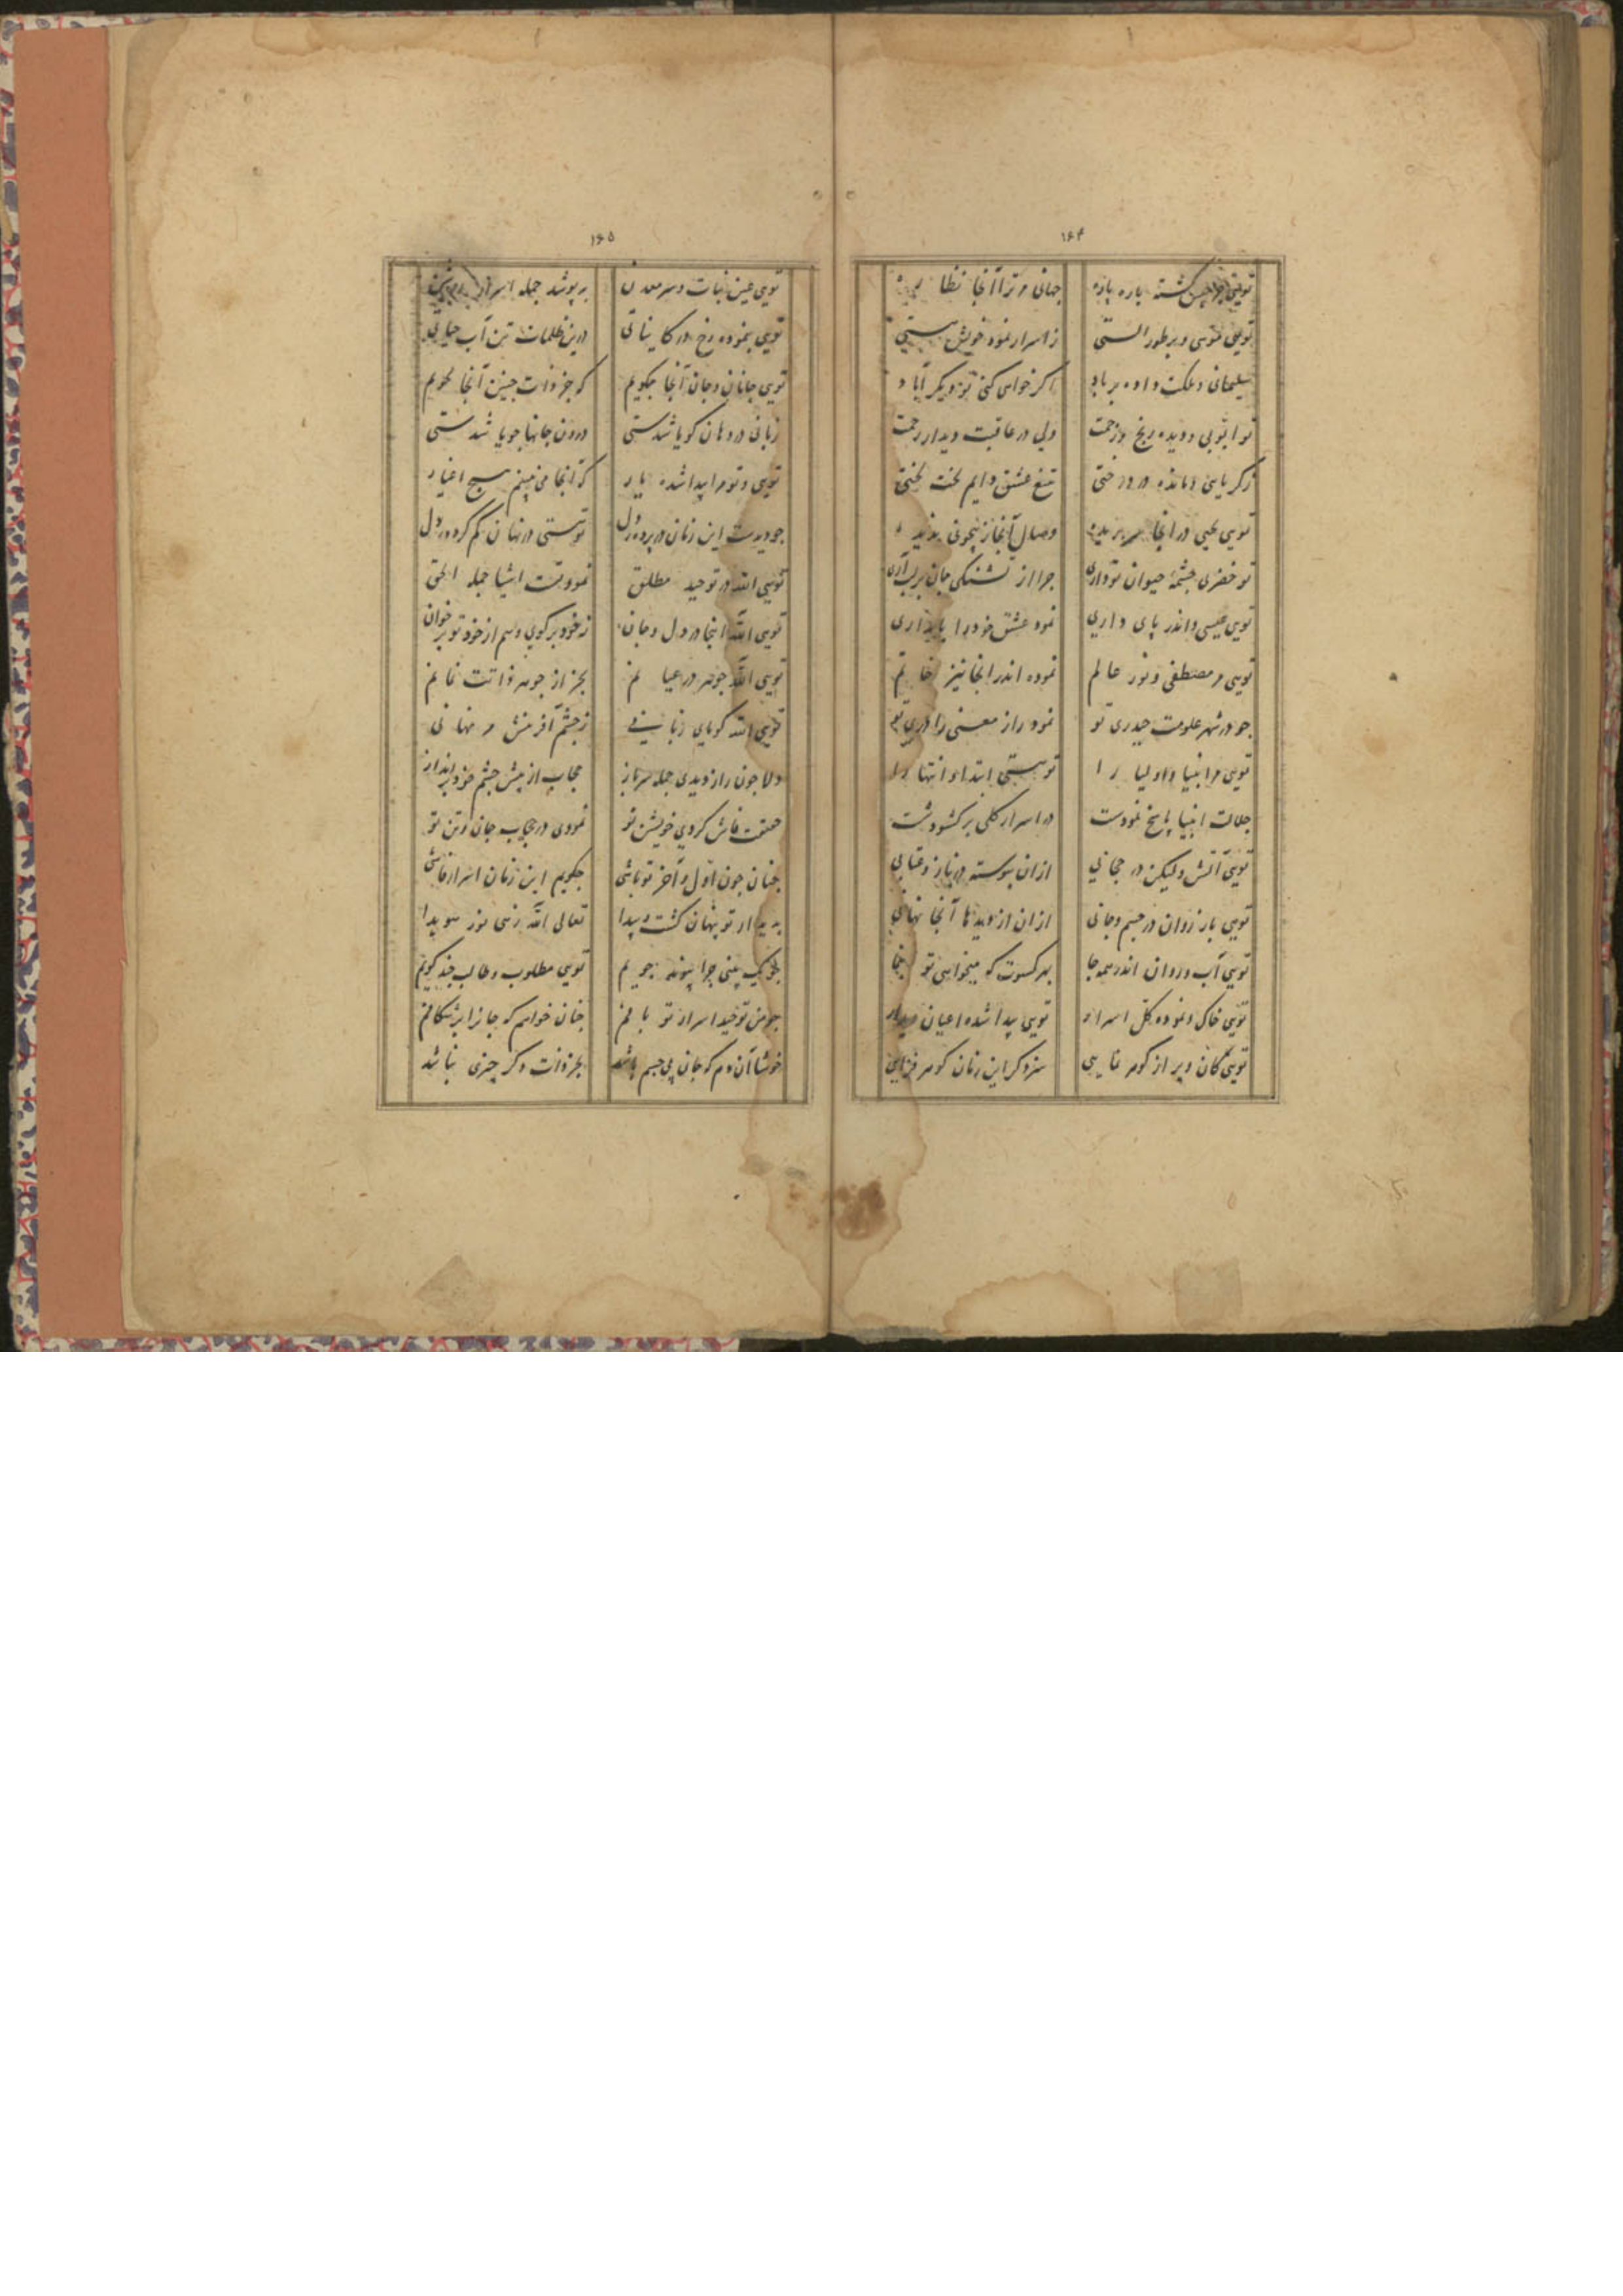 ۱۶۴
تویی جرجیس گشته باره باره جهانی مر ترا آنجا نظاره
تویی موسی و بر طور الستی ز اسرار نمود خویش مستی
سلیمانی و ملکت داده بر باد اکر خواهی کنی تو دیکر آباد
تو ایوبی و دیده رنج و زحمت ولی در عاقبت دیدار رحمت
زکریایی و مانده در درختی بتیغ عشق دایم لخت لختی
تویی یحیی در آنجا سر بریده وصال آنجا ز بیچونی بدیده
تو خضری چشمهٔ حیوان تو داری چرا از تشنکی جان بر لب آری
تویی عیسی و اندر پای داری نمود عشق خود را پایداری
تویی مر مصطفی و نور عالم نموده اندر آنجا نیز خاتم
چو در شهر علومت حیدری تو نمود راز معنی را دری تو
تویی مر انبیا و اولیا را تو هستی ابتدا و انتها را
جلالت انبیا پاسخ نمودست در اسرار کلی بر کشودست
تویی آتش ولیکن در حجابی ازان پیوسته در ناز و عتابی
تویی باد روان در جسم و جانی ازان از دیدها آنجا نهانی
تویی آب و روان اندر همه جا بهر کسوت که میخواهی تو بنما
تویی خاک و نموده کل اسرار تویی پیدا شده اعیان دیدار
تویی کان و پر از کوهر نمایی سزد کر این زمان کوهر فزایی
۱۶۵
تویی عین نبات و سر معدن بپوشد جمله اسرار روشن
تویی بنموده رخ در کایناتی درین ظلمات تن آب حیاتی
تویی جانان و جان آنجا چکویم که جز ذات چنین آنجا نجویم
زبانی در دهان کویا شدستی درون جانها جویا شدستی
تویی و تو مرا پیدا شده یار که آنجا می نبینم هیچ اغیار
چو دیدت این زمان در پرده دل تو هستی در نهان کم کرده دل
تویی الله در توحید مطلق نمودتست اشیا جمله الحق
تویی الله اینجا در دل و جان ز خود برکوی و هم از خود تو برخوان
تویی الله جوهر در عیانم بجز از جوهر ذاتت ندانم
تویی الله کویای زبانی ز چشم آفرینش مر نهانی
دلا چون راز دیدی جمله سرباز حجاب از پیش چشم خود برانداز
حقیقت فاش کردی خویشتن تو نمودی در حجاب جان و تن تو
چنان چون اول و آخر تو باشی چکویم این زمان اسرار فاشی
پدیدار تو پنهان کشت و پیدا تعالی الله زهی نور هویدا
چو یک بینی چرا پیوند جویم تویی مطلوب و طالب چند کویم
چو من توحید اسرار تو یابم چنان خواهم که جانرا برشکافم
خوشا آن دم که جان بی جسم باشد بجز ذات دکر چیزی نباشد